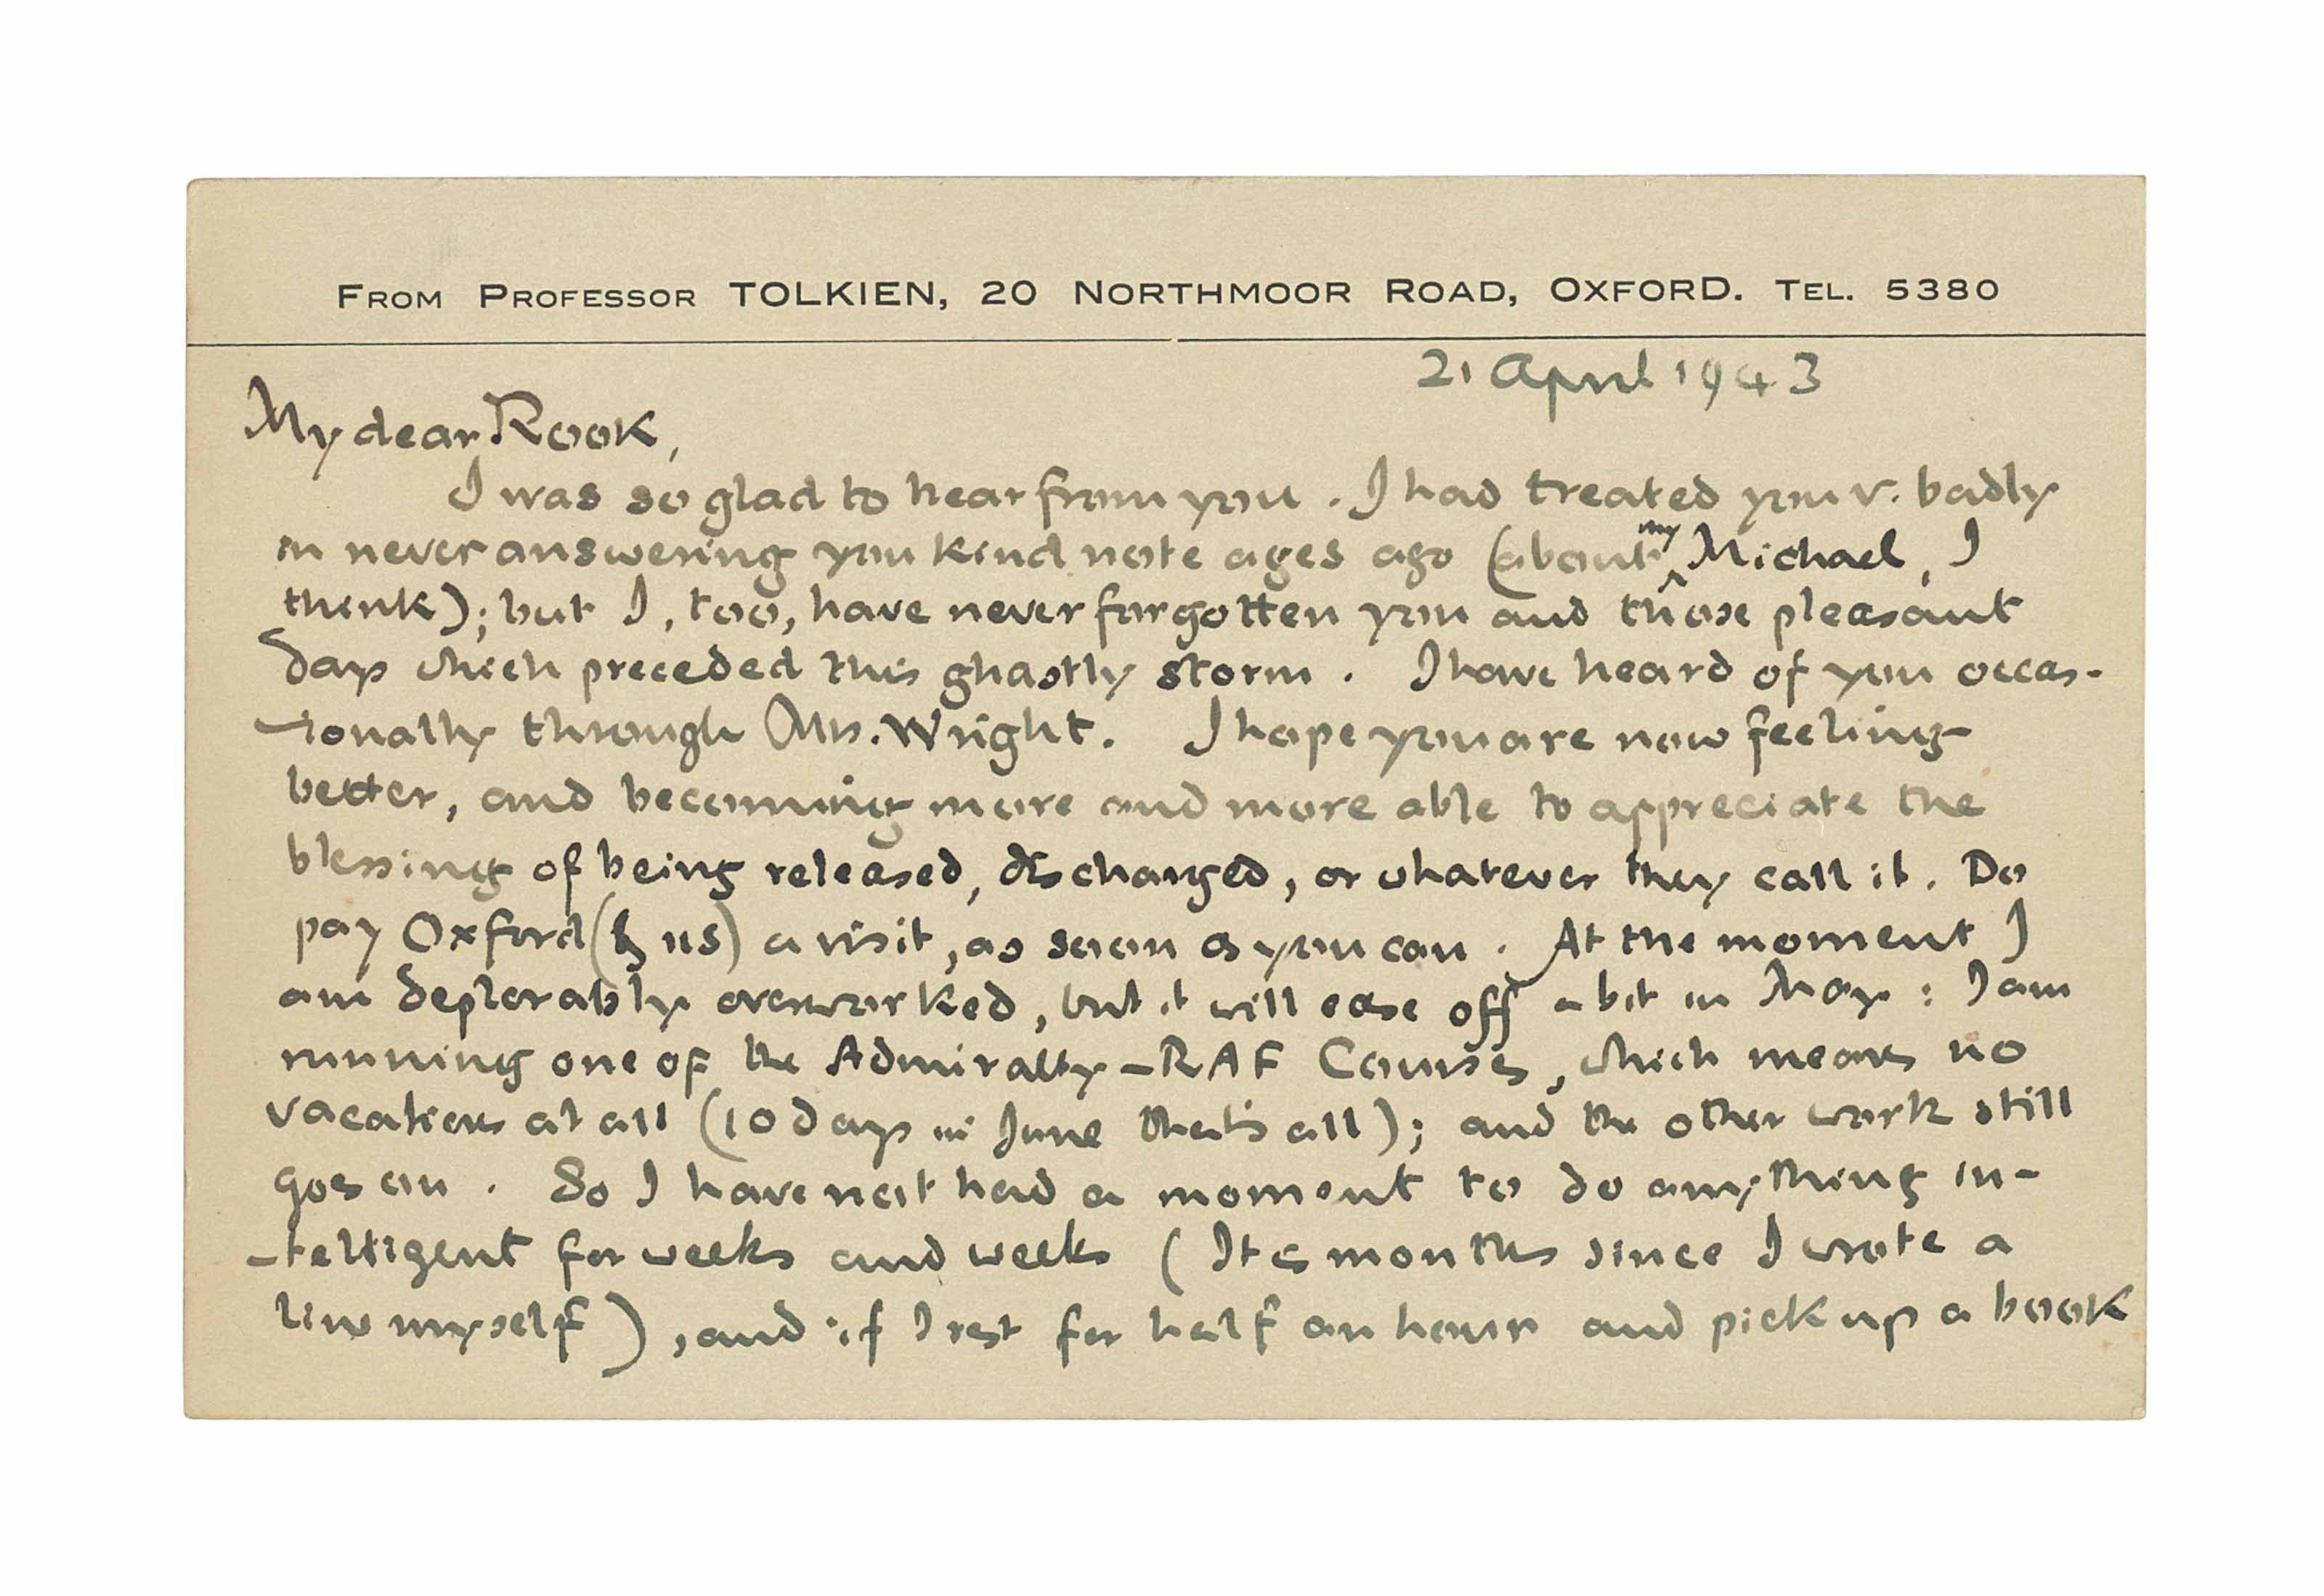 FROM PROFESSOR TOLKIEN, 20 NORTHMOOR ROAD, OXFORD. TEL. 5380
21 April 1943
My dear Rook,
I was so glad to hear from you. I had treated you v. badly
in never answering you kind note ages ago (about my Michael, I
think); but I, too, have never forgotten you and those pleasant
days which preceded this ghastly storm. I have heard of you occas-
-ionally through Mrs. Wright. I hope you are now feeling
better, and becoming more and more able to appreciate the
blessing of being released, discharged, or whatever they call it. Do
pay Oxford (& us) a visit, as soon as you can. At the moment I
am deplorably overworked, but it will ease off a bit in May: I am
running one of the Admiralty-RAF Courses, which means no
vacations at all (10 days in June that's all); and the other work still
goes on. So I have not had a moment to do anything in-
-telligent for weeks and weeks (It is months since I wrote a
line myself), and if I rest for half an hour and pick up a book